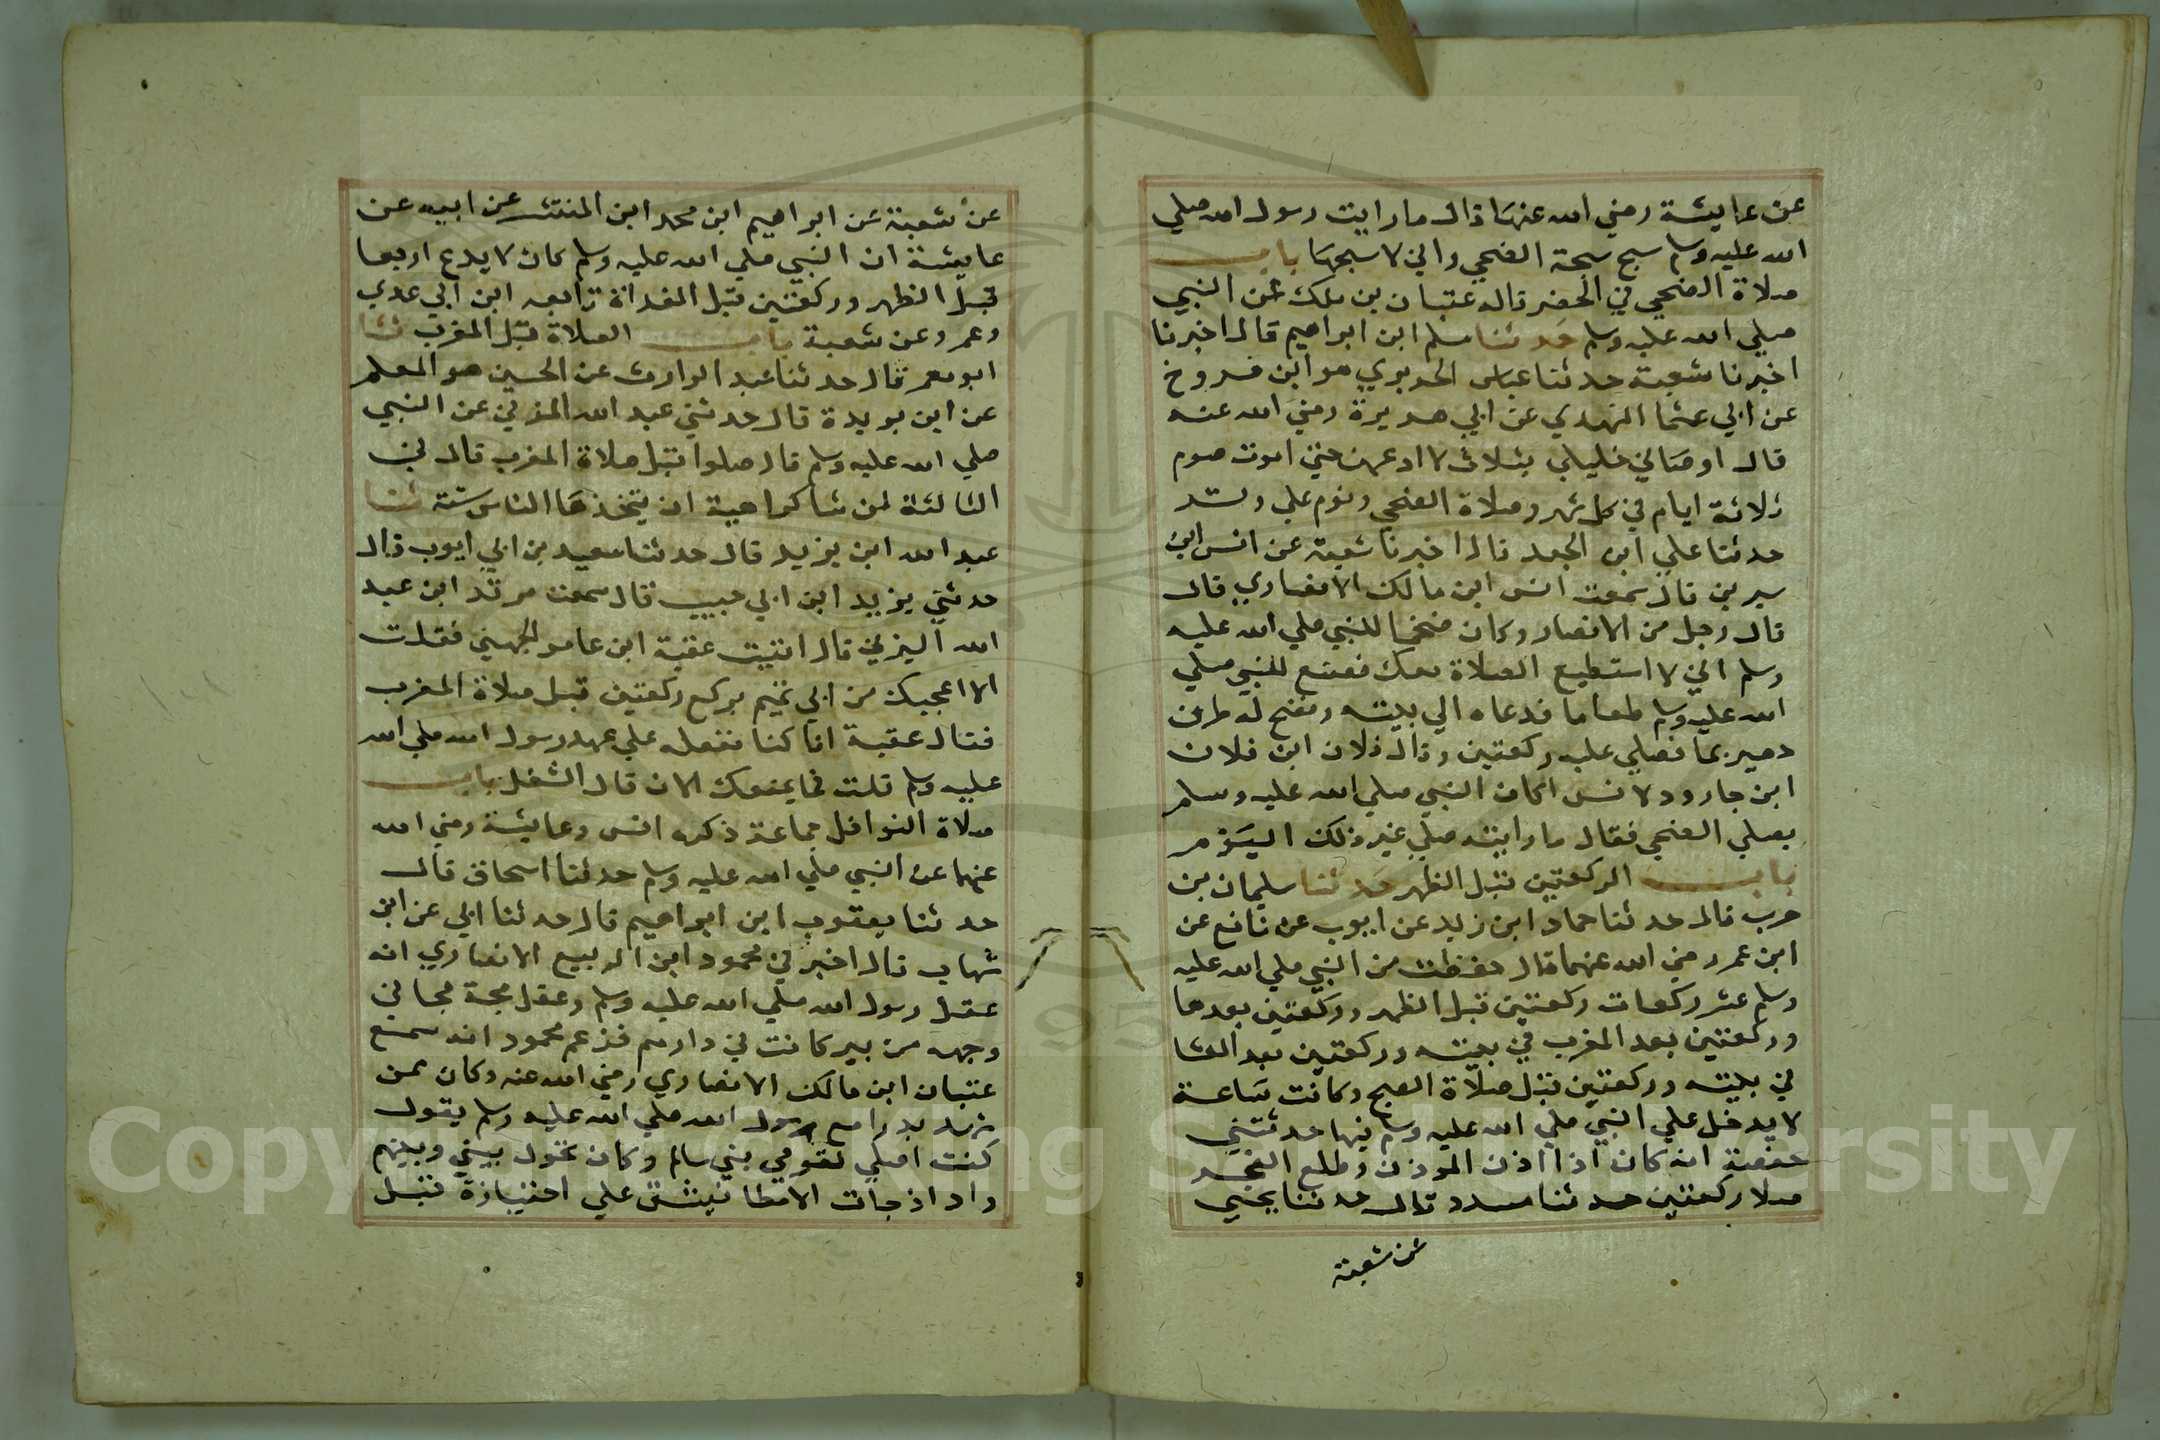 عن عايشة رضي الله عنها قال ما رايت رسول الله صلي
الله عليه وسلم سبح سبحة الضحي واني لاسبحها باب
صلاة الضحي في الحضر قاله عتبان بن ملك عن النبي
صلي الله عليه وسلم حدثنا مسلم ابن ابراهيم قال اخبرنا
اخبرنا شعبة حدثنا عباس الحريري هو ابن فروخ
عن ابي عثما النهدي عن ابي هريرة رضي الله عنه
قال اوصاني خليلي بثلاث لا ادعهن حتي اموت صوم
ثلاثة ايام في كل شهر وصلاة الضحي ونوم علي وتر
حدثنا علي ابن الجعد قال اخبرنا شعبة عن انس ابن
سيرين قال سمعت انس ابن مالك الانصاري قال
قال رجل من الانصار وكان ضخما للنبي صلي الله عليه
وسلم اني لا استطيع الصلاة معك فصنع للنبي صلي
الله عليه وسلم طعاما فدعاه الي بيته ونضح له طرف
حصير بما فصلي عليه ركعتين وقال فلان ابن فلان
ابن جارود لانس اكان النبي صلي الله عليه وسلم
يصلي الضحي فقال ما رايته صلي غير ذلك اليوم
باب الركعتين قبل الظهر حدثنا سليمان بن
حرب قال حدثنا حماد ابن زيد عن ايوب عن نافع عن
ابن عمر رضي الله عنهما قال حفظت من النبي صلي الله عليه
وسلم عشر ركعات ركعتين قبل الظهر وركعتين بعدها
وركعتين بعد المغرب في بيته وركعتين بعد العشا
في بيته وركعتين قبل صلاة الصبح وكانت ساعة
لا يدخل علي النبي صلي الله عليه وسلم فيها حدثتني
حفصة انه كان اذا اذن الموذن وطلع الفجر
صلا ركعتين حدثنا مسدد قال حدثنا يحيي
عن شعبة
عن شعبة عن ابراهيم ابن محمد ابن المنتشر عن ابيه عن
عايشة ان النبي صلي الله عليه وسلم كان لا يدع اربعا
قبل الظهر وركعتين قبل الغداة تابعه ابن ابي عدي
وعمرو عن شعبة باب الصلاة قبل المغرب ثنا
ابو معمر قال حدثنا عبد الوارث عن الحسين هو المعلم
عن ابن بريدة قال حدثني عبد الله المزني عن النبي
صلي الله عليه وسلم قال صلوا قبل صلاة المغرب قال في
الثالثة لمن شا كراهية ان يتخذها الناس سنة ثنا
عبد الله ابن يزيد قال حدثنا سعيد بن ابي ايوب قال
حدثني يزيد ابن ابي حبيب قال سمعت مرثد ابن عبد
الله اليزني قال اتيت عقبة ابن عامر الجهني فقلت
الا اعجبك من ابي تميم يركع ركعتين قبل صلاة المغرب
فقال عقبة انا كنا نفعله علي عهد رسول الله صلي الله
عليه وسلم قلت فما يمنعك الان قال الشغل باب
صلاة النوافل جماعة ذكره انس وعايشة رضي الله
عنهما عن النبي صلي الله عليه وسلم حدثنا اسحاق قال
حدثنا يعقوب ابن ابراهيم قال حدثنا ابي عن ابن
شهاب قال اخبرني محمود ابن الربيع الانصاري انه
عقل رسول الله صلي الله عليه وسلم وعقل مجة مجها في
وجهه من بير كانت في دارهم فزعم محمود انه سمع
عتبان ابن مالك الانصاري رضي الله عنه وكان ممن
شهد بدرا مع رسول الله صلي الله عليه وسلم يقول
كنت اصلي لقومي بني سالم وكان يحول بيني وبينهم
واد اذ جات الامطا فيشق علي اجتيازه قبل
Copyright © King Saud University